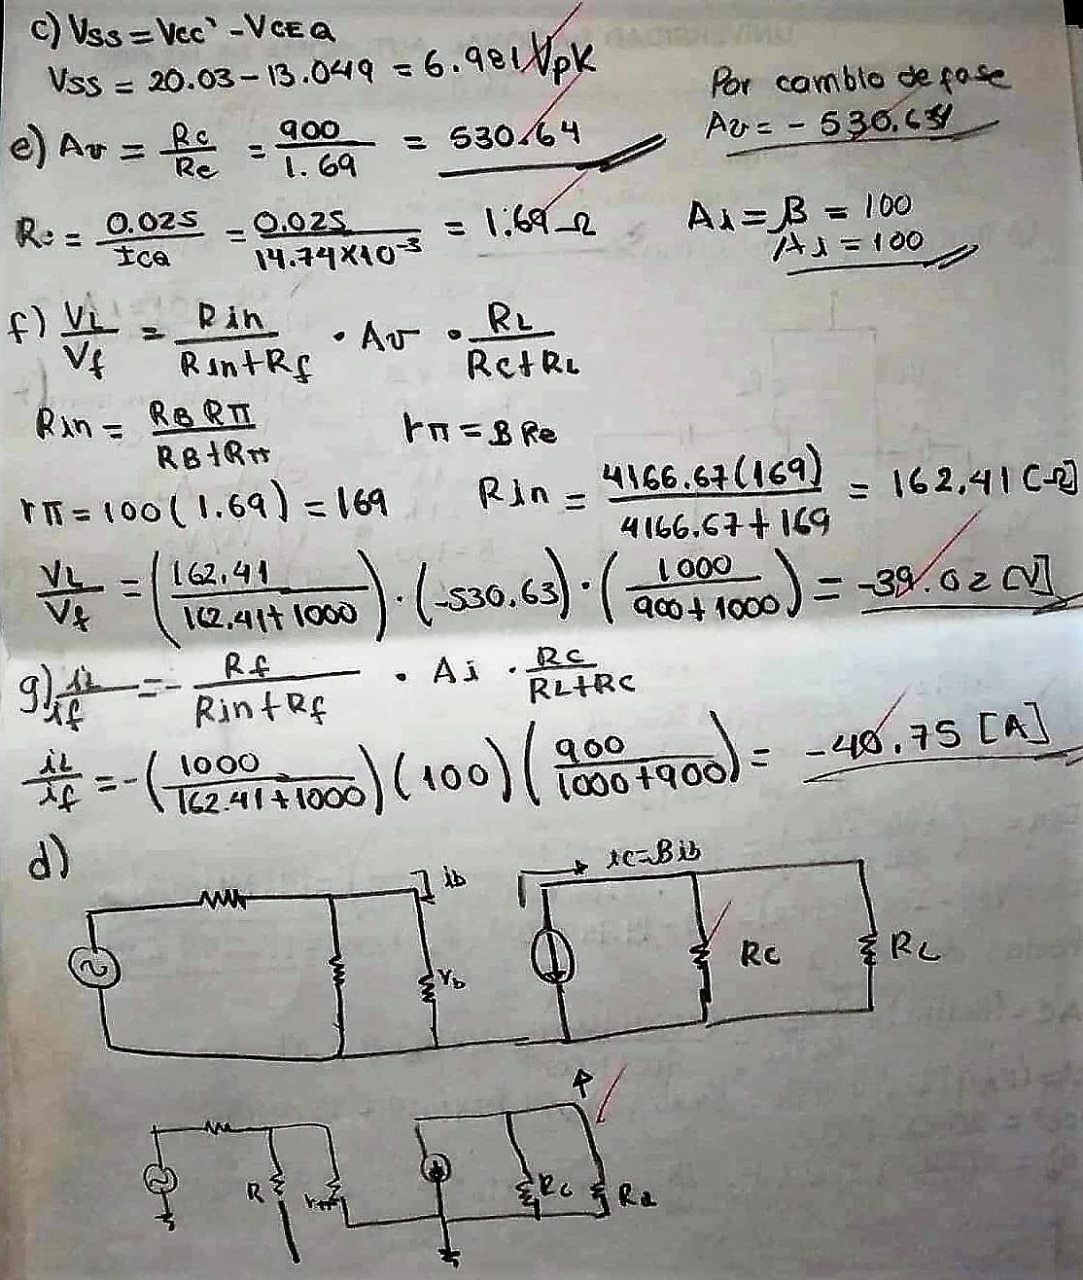 c) Vss = Vcc' - VCEQ
Vss = 20.03 - 13.049 = 6.981 Vpk
Por cambio de fase
e) Av = Rc/Re = 900/1.69 = 530.64
Av = - 530.64
Re = 0.025/ICQ = 0.025/14.74x10^-3 = 1.69 Ω
Ai = β = 100
Ai = 100
f) VL/Vf = Rin/(Rin+Rf) · Av · RL/(Rc+RL)
Rin = RB Rπ/(RB+Rπ) rπ = β Re
rπ = 100(1.69) = 169 Rin = 4166.67(169)/(4166.67+169) = 162.41 [Ω]
VL/Vf = (162.41/(162.41+1000)) · (-530.63) · (1000/(900+1000)) = -39.02 [V]
g) iL/if = - Rf/(Rin+Rf) · Ai · Rc/(RL+Rc)
iL/if = -(1000/(162.41+1000))(100)(900/(1000+900)) = -40.75 [A]
d)
ib
ic=βib
rb
Rc
RL
R
rπ
Rc